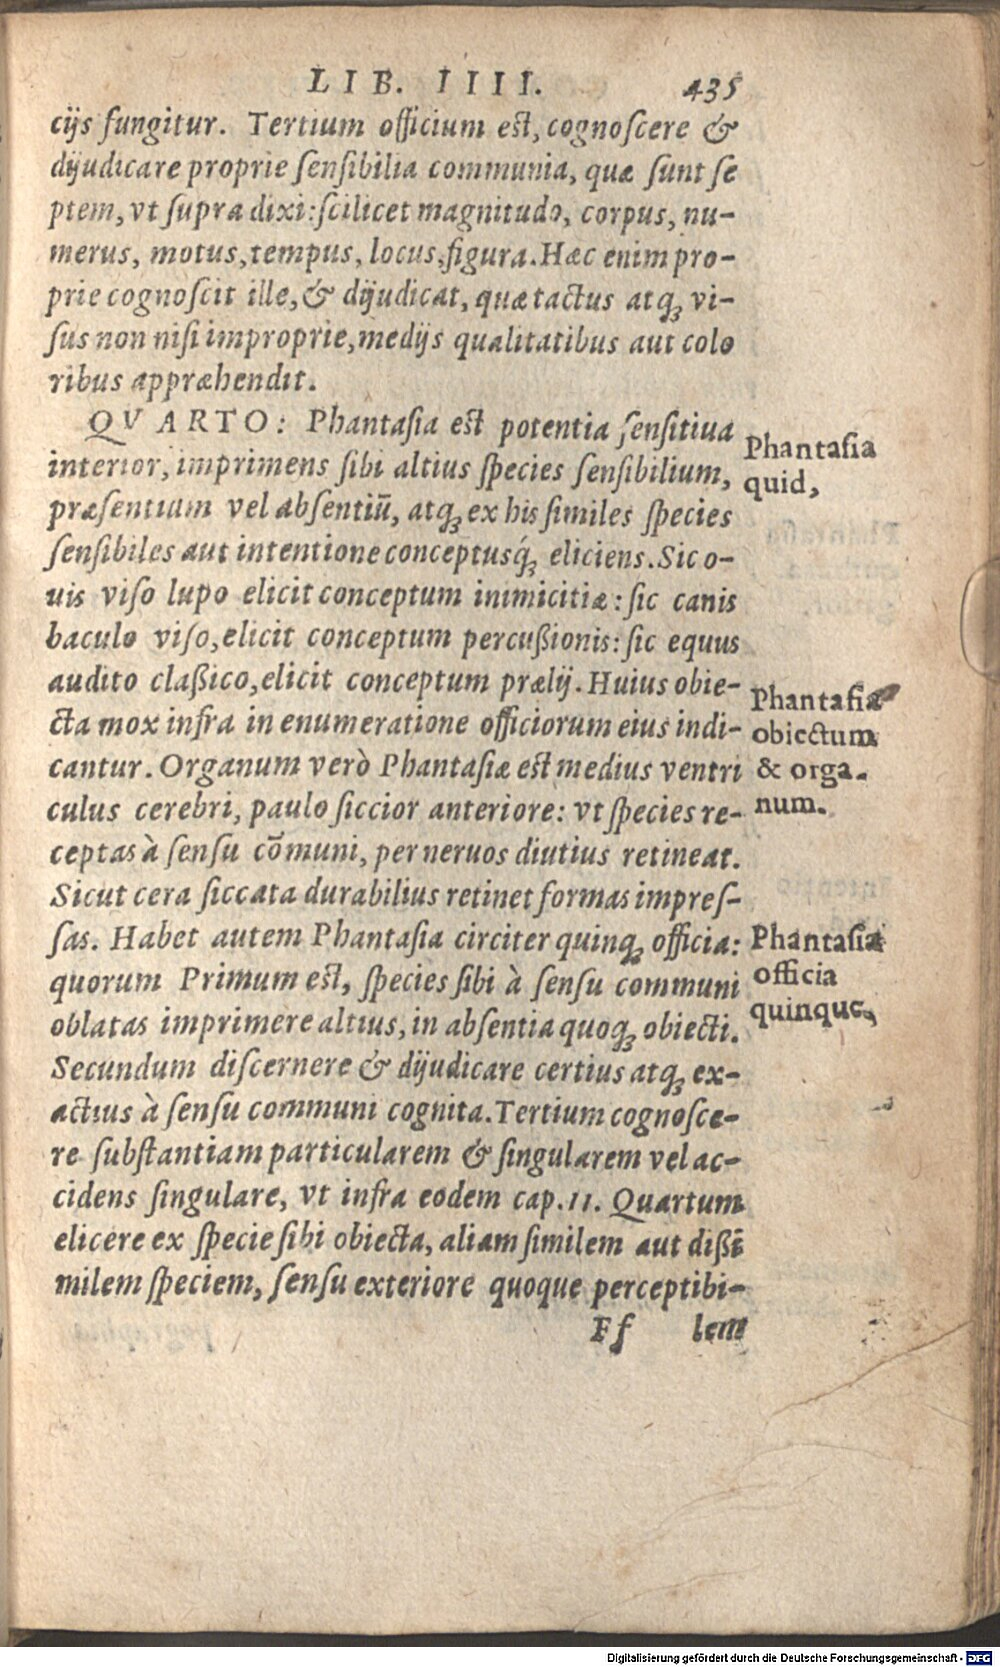 LIB. IIII. 435
cijs fungitur. Tertium officium est, cognoscere &
dijudicare proprie sensibilia communia, quæ sunt se
ptem, vt supra dixi: scilicet magnitudo, corpus, nu-
merus, motus, tempus, locus, figura. Hæc enim pro-
prie cognoscit ille, & dijudicat, quæ tactus atq; vi-
sus non nisi improprie, medijs qualitatibus aut colo
ribus appræhendit.
QVARTO: Phantasia est potentia sensitiua
interior, imprimens sibi altius species sensibilium,
præsentium vel absentiū, atq; ex his similes species
sensibiles aut intentione conceptusq́; eliciens. Sic o-
uis viso lupo elicit conceptum inimicitiæ: sic canis
baculo viso, elicit conceptum percußionis: sic equus
audito claßico, elicit conceptum prælij. Huius obie-
cta mox infra in enumeratione officiorum eius indi-
cantur. Organum verò Phantasiæ est medius ventri
culus cerebri, paulo siccior anteriore: vt species re-
ceptas à sensu cōmuni, per neruos diutius retineat.
Sicut cera siccata durabilius retinet formas impres-
sas. Habet autem Phantasia circiter quinq; officia:
quorum Primum est, species sibi à sensu communi
oblatas imprimere altius, in absentia quoq; obiecti.
Secundum discernere & dijudicare certius atq; ex-
actius à sensu communi cognita. Tertium cognosce-
re substantiam particularem & singularem vel ac-
cidens singulare, vt infra eodem cap. 11. Quartum
elicere ex specie sibi obiecta, aliam similem aut dißī
milem speciem, sensu exteriore quoque perceptibi-
Ff lem
Phantasia
quid,
Phantasiæ
obiectum
& orga-
num.
Phantasiæ
officia
quinque,
Digitalisierung gefördert durch die Deutsche Forschungsgemeinschaft - DFG